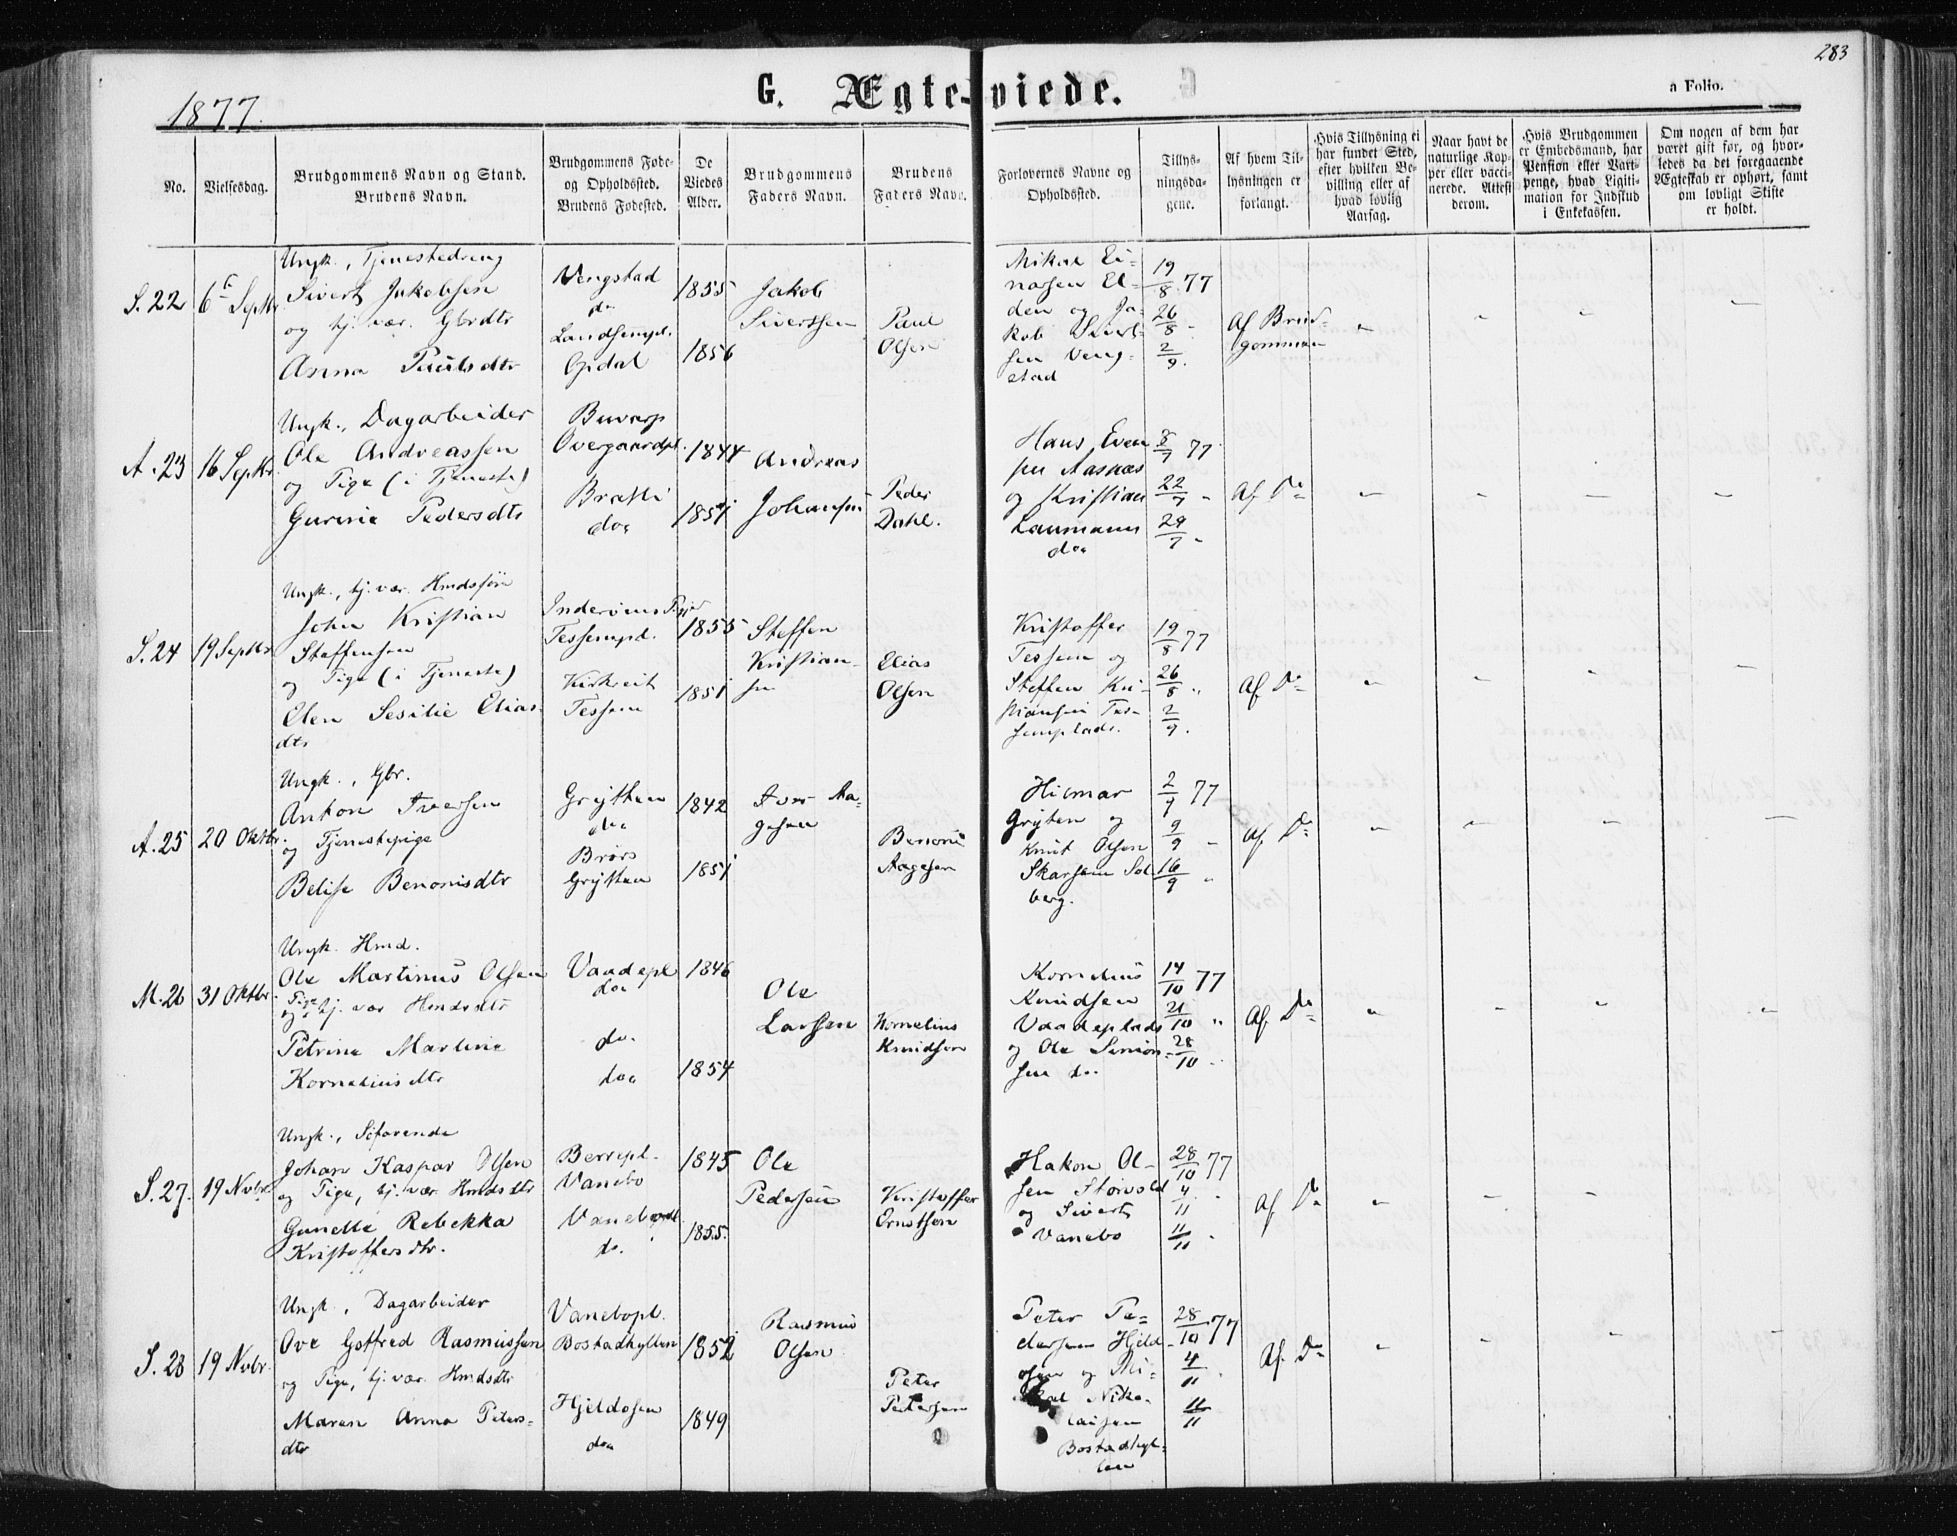 283
1877.
G. Ægte-viede.
a Folio.
No.
Vielsesdag.
Brudgommens Navn og Stand.
Brudens Navn.
Brudgommens Føde-
og Opholdssted.
Brudens Fødested.
De
Viedes
Alder.
Brudgommens
Faders Navn.
Brudens
Faders Navn.
Forlovernes Navne og
Opholdssted.
Tillys-
ningsda-
gene.
Af hvem Til-
lysningen er
forlangt.
Hvis Tillysning ei
har fundet Sted,
efter hvilken Be-
villing eller af
hvad lovlig
Aarsag.
Naar havt de
naturlige Kop-
per eller vacci-
nerede. Attest
derom.
Hvis Brudgommen
er Embedsmand, har
Pension eller Vart-
penge, hvad Ligiti-
mation for Indskud
i Enkekassen.
Om nogen af dem har
været gift før, og hvor-
ledes da det foregaaende
Ægteskab er ophørt, samt
om lovligt Skifte
er holdt.
S. 22
6 Septbr
Ungk., Tjenestedreng
Sivert Jakobsen
og hj. vær. Gbrdtr
Anna Paulsdtr
Vengstad
do
Landsempl.
Opdal
1855
1856
Jakob
Sivertsen
Paul
Olsen
Mikal Ei-
narsen El-
den og Ja-
kob Sivert-
sen Veng-
stad
19/8 77
26/8 "
2/9 "
Af Brud-
gommen
A. 23
16 Septbr.
Ungk., Dagarbeider
Ole Andreassen
og Pige (i Tjeneste)
Gurine Pedersdtr
Buvarp
Overgaardpl.
Bratli
doa
1844
1851
Andreas
Johansen
Peder
Dahl.
Hans Even
sen Aasnæs
og Kristian
Laumann
doa
8/7 77
22/7 "
29/7 "
Af Do
S. 24
19 Septbr
Ungk., hj. vær. Hmdssøn
John Kristian
Steffensen
og Pige (i Tjeneste)
Elen Sesilie Elias-
dtr
Tessempd.
Kirkreit
Tessem
1855
1851
Steffen
Kristian-
sen
Elias
Olsen
Kristoffer
Tessem og
Steffen Kri-
stiansen Tes-
semplads.
19/8 77
26/8 "
2/9 "
Af Do
A. 25
20 Oktbr.
Ungk., Gbr.
Anton Iversen
og Tjenestepige
Belise Benonisdtr
Grøtten
doa
Brørs
Grøtten
1842
1851
Iver Aa-
gesen
Benoni
Aagesen
Hilmar
Grøten og
Knut Olsen
Skarsem Sol-
berg.
2/9 77
9/9 "
16/9 "
Af Do
M. 26
31 Oktbr.
Ungk. Hmd.
Ole Martinus Olsen
og Pige, hj. vær Hmdsdtr
Petrine Martine
Korneliusdtr
Vaadepl
doa
do.
doa
1846
1854
Ole
Larssen
Kornelius
Knudsen
Kornelius
Knudsen
Vaadeplads
og Ole Simon-
sen do.
14/10 77
21/10 "
28/10 "
Af Do
S. 27.
19 Novbr.
Ungk., Søfarende
Johan Kaspar Olsen
og Pige, hj. vær. Hmdsdtr
Gunelle Rebekka
Kristoffersdtr.
Berrepl.
Vanebo
Vanebopl.
do.
1845
1855.
Ole
Pedersen
Kristoffer
Ernstsen
Hakon Ol-
sen Storvold
og Sivert
Vanebo
28/10 77
4/11 "
11/11 "
Af Do
S. 28
19 Novbr.
Ungk., Dagarbeider
Ove Gotfred Rasmussen
og Pige, hj. vær. Hmdsdtr
Maren Anna Peters-
dtr
Vanebopl.
Bostadhyllen
Hjeldosen
doa
1852
1849
Rasmus
Olsen
Peter
Pedersen
Peter Pe-
dersen Hjeld-
osen og Mi-
kal Niko-
laisen
Bostadhyl-
len
28/10 77
4/11 "
11/11
Af Do